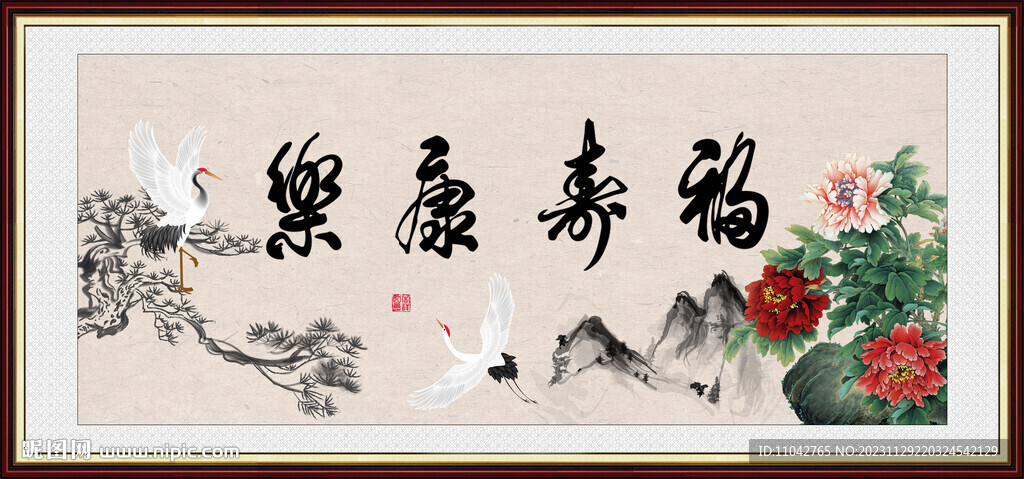 福寿康樂
昵图网 www.nipic.com
ID:11042765 NO:20231129220324542129